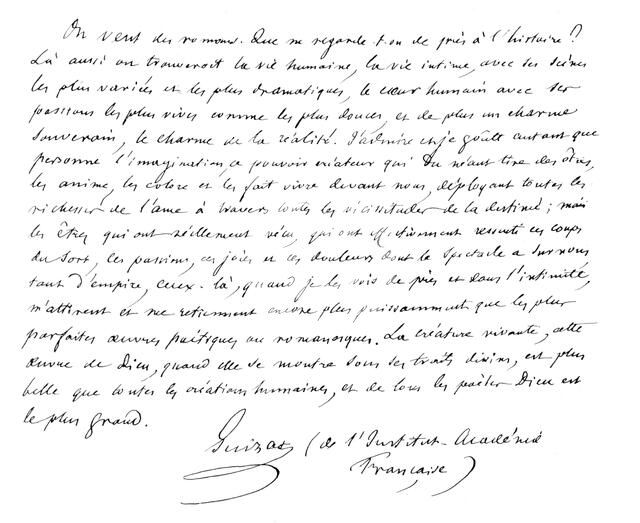 On veut des romans. Que ne regarde-t-on de près à l'histoire ?
Là aussi on trouverait la vie humaine, la vie intime, avec ses scènes
les plus variées et les plus dramatiques, le cœur humain avec ses
passions les plus vives comme les plus douces, et de plus un charme
souverain, le charme de la réalité. J'admire et je goûte autant que
personne l'imagination, ce pouvoir créateur qui du néant tire des êtres,
les anime, les colore et les fait vivre devant nous, déployant toutes les
richesses de l'âme à travers toutes les vicissitudes de la destinée ; mais
les êtres qui ont réellement vécu, qui ont effectivement ressenti ces coups
du sort, ces passions, ces joies et ces douleurs dont le spectacle a sur nous
tant d'empire, ceux-là, quand je les vois de près et dans l'intimité,
m'attirent et me retiennent encore plus puissamment que les plus
parfaites œuvres poétiques ou romanesques. La créature vivante, cette
œuvre de Dieu, quand elle se montre sous ses traits divins, est plus
belle que toutes les créations humaines, et de tous les poètes Dieu est
le plus grand.
Guizot (de l'Institut-Académie
Française)